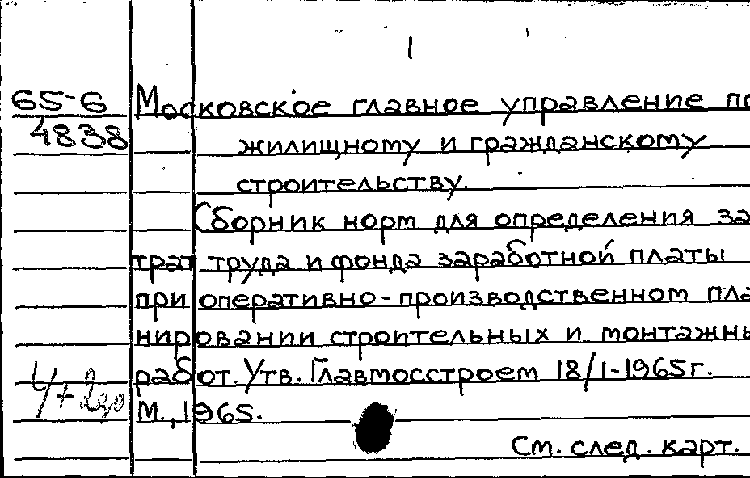 1
65-6 Московское главное управление по
4838 жилищному и гражданскому
строительству.
Сборник норм для определения за
трат труда и фонда заработной платы
при оперативно-производственном пла
нировании строительных и монтажны
работ. Утв. Главмосстроем 18/I-1965г.
М., 1965.
См. след. карт.